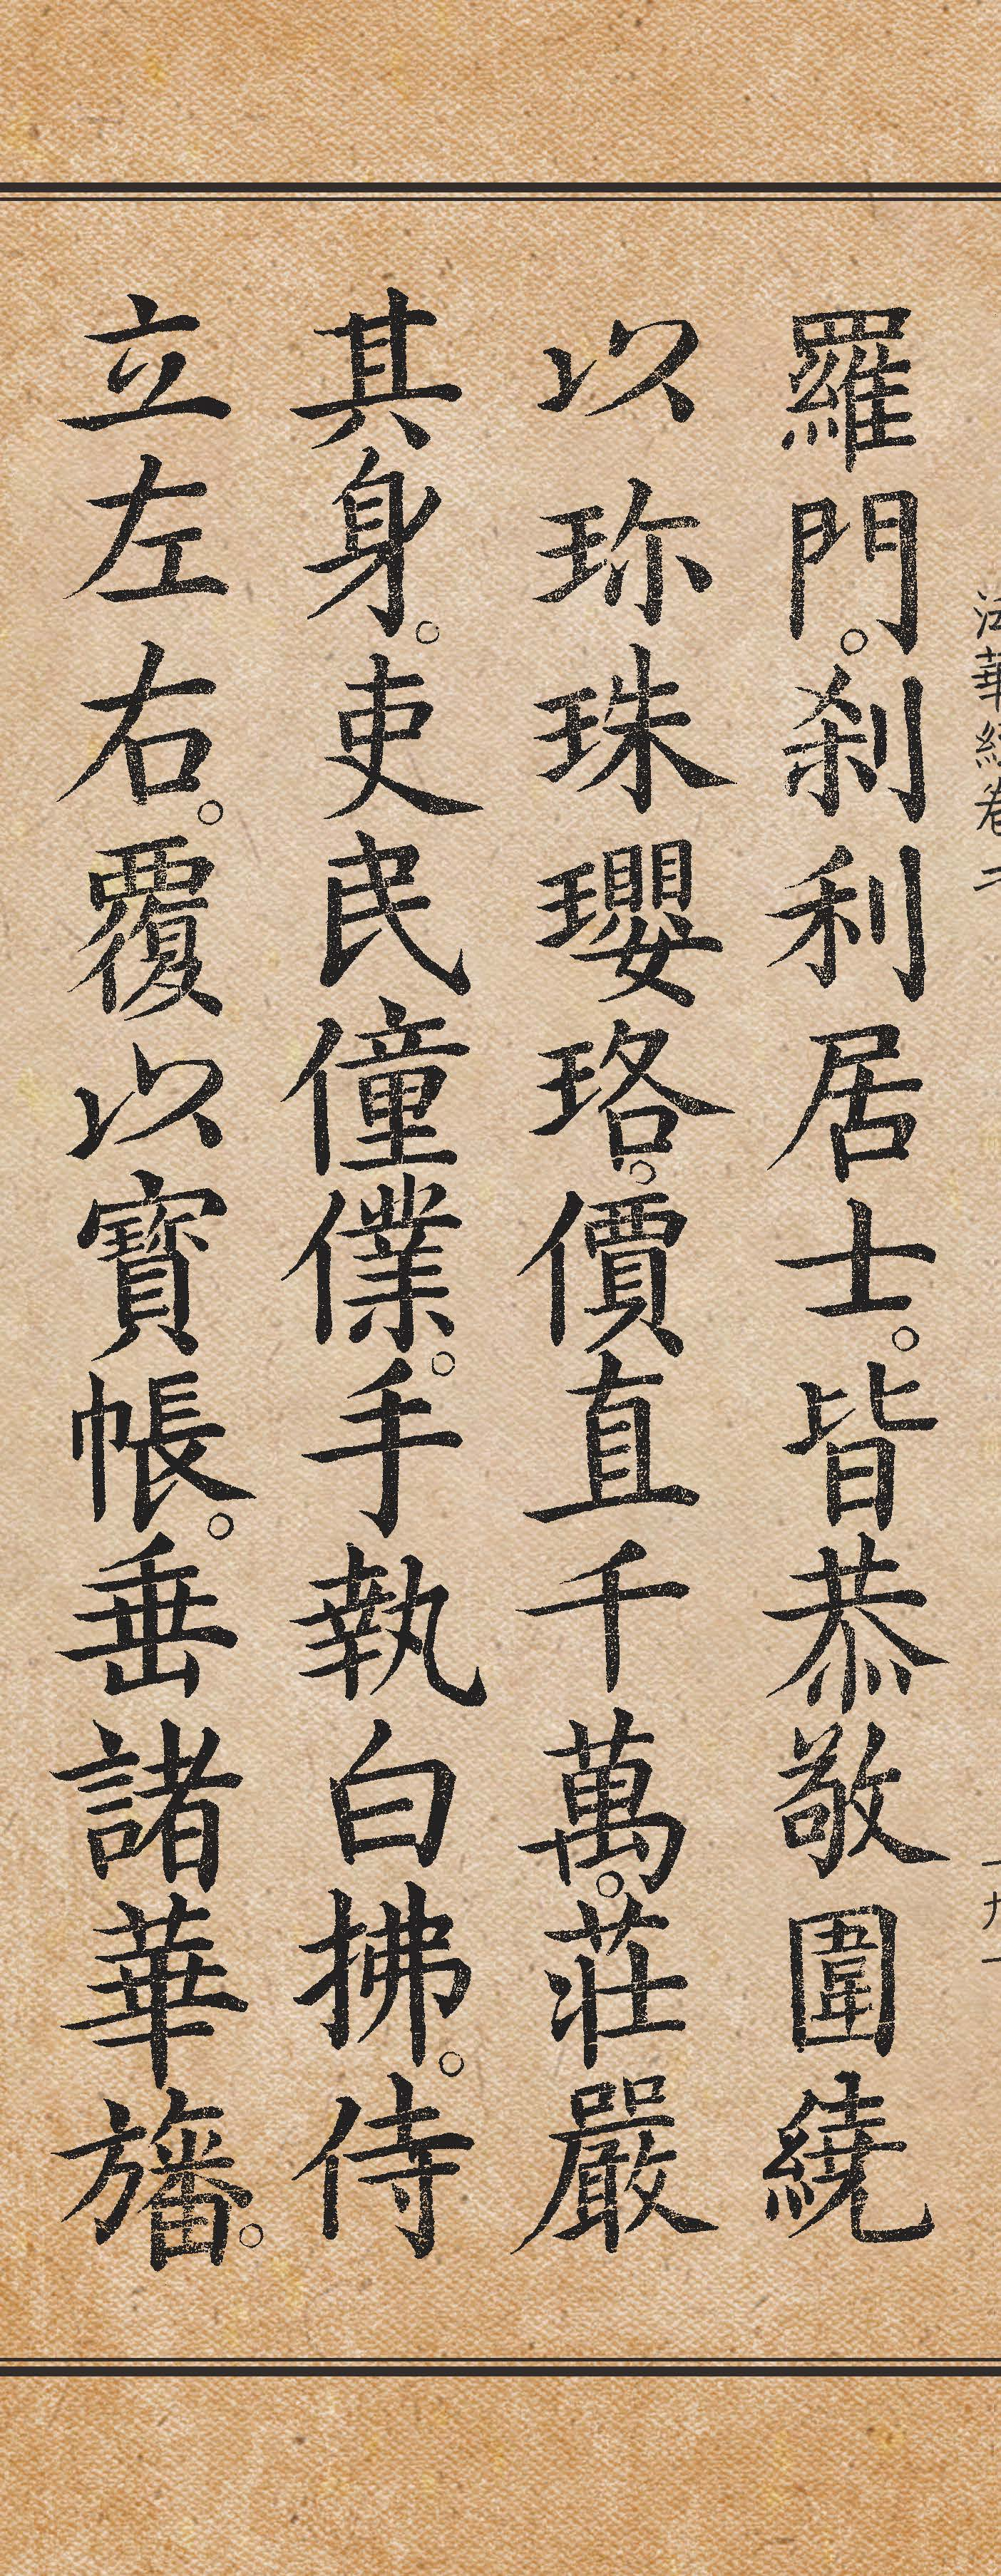 法華經卷二
羅門。刹利居士。皆恭敬圍繞
以珎珠瓔珞。價直千萬。莊嚴
其身。吏民僮僕。手執白拂。侍
立左右。覆以寶帳。垂諸華旛。